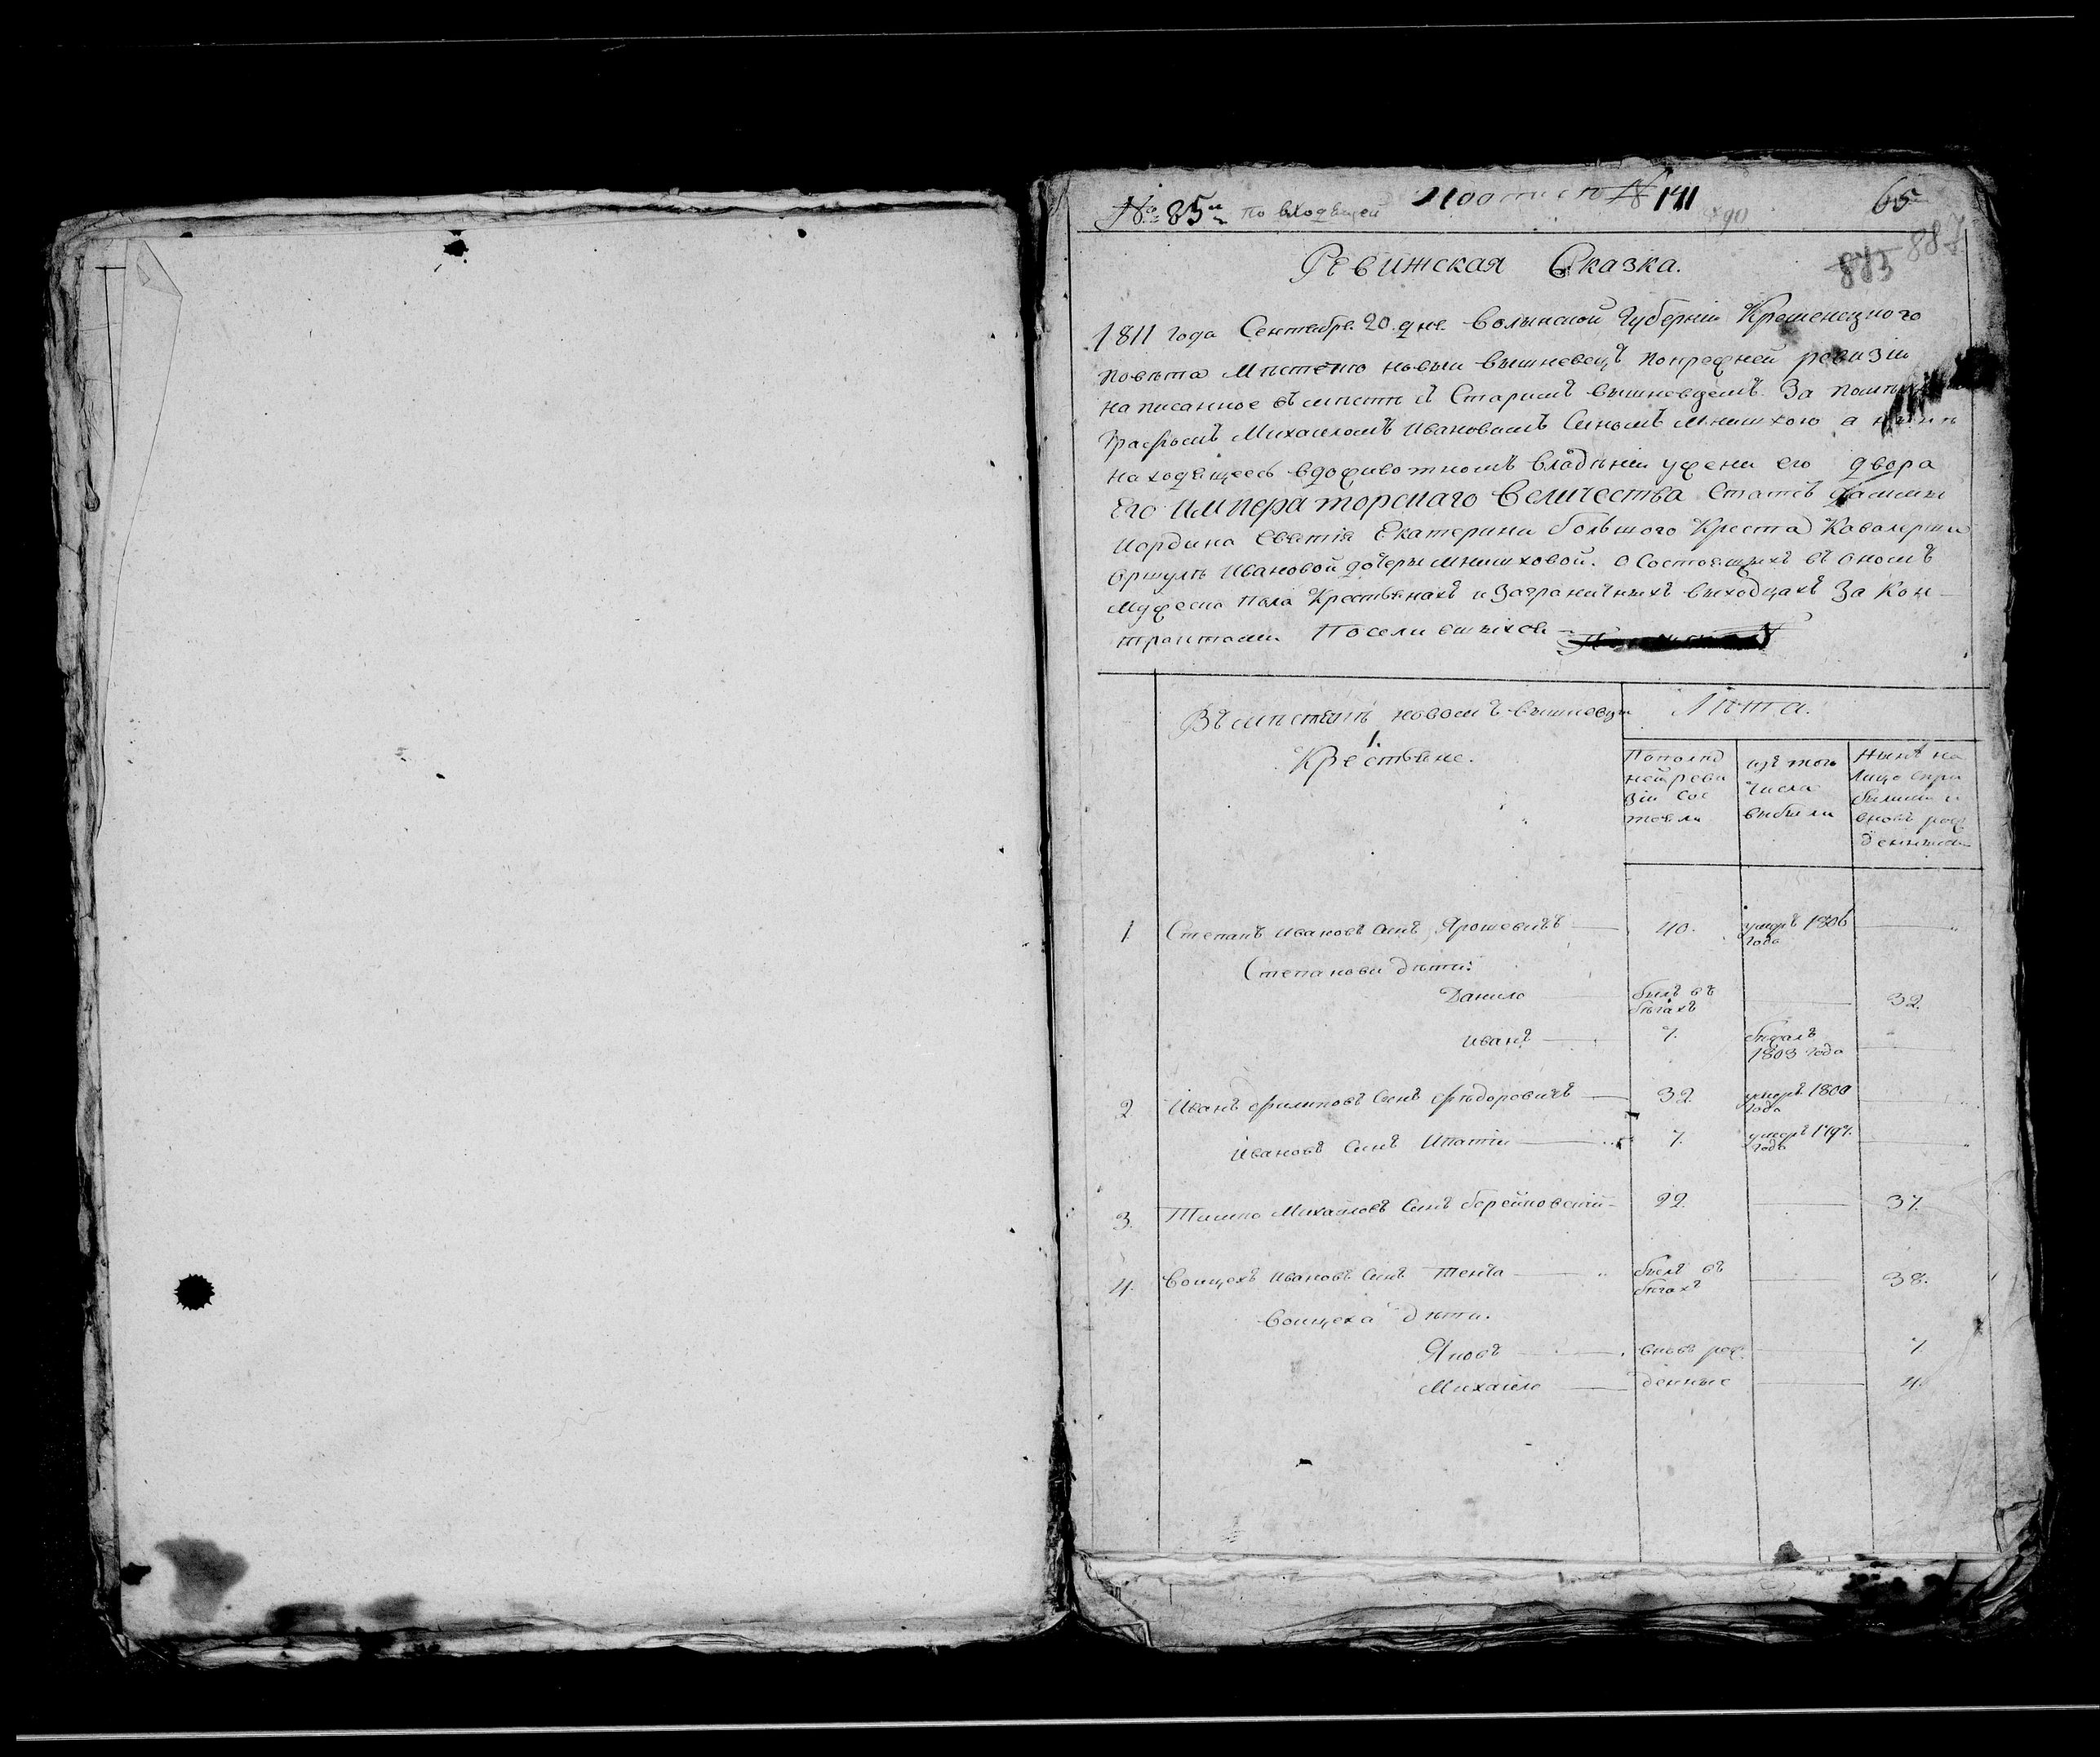 № 85й по входящей № 141 65
883 887
Ревижская Сказка.
1811 года Сентября 20 дня Волынской Губерніи Кременецкого
повѣта Мѣстечко новыи Вышневецъ попрежней ревизіи
написанное вмѣстѣ съ Старымъ Вышневцемъ За
Графомъ Михаиломъ Ивановымъ Сыномъ Мнишкою а
находящееся вдоживотномъ владѣніи ужени его двора
Его Императорскаго Величества Статсъ Дамины
Иордина Святія Екатерины большого Креста Кавалерши
Оршулѣ Ивановой дочеры Мнишховой. О Состоящихъ въ ономъ
мужеска пола Крестьянахъ и Заграничныхъ выходцахъ За Кон-
трактами Поселившихся
Въ мѣстечкѣ новомъ Вышневцы Лѣта.
1.
Крестьяне.
Пополѣд
ней реви
зіи сос
тояли
изъ того
числа
выбыли
Нынѣ на
лицо спри
былыми и
вновь рож
денными
1 Степанъ Ивановъ Сынъ Ярошевичъ 40. умеръ 1806
года
Степановы дѣти:
Данило былъ въ
бѣгахъ 32.
Иванъ 7. бѣжалъ
1803 года
2 Иванъ Филиповъ Сынъ Фѣдоровичъ 32. умеръ 1800
года
Ивановъ Сынъ Ипатіи 7. умеръ 1797.
года
3. Михаиловъ Сынъ 22. 37.
4. Воицехъ Ивановъ Сынъ былъ въ
бѣгахъ 38.
Воицеха дѣти.
Яковъ вновь рож. 7
Михаило денные 4.